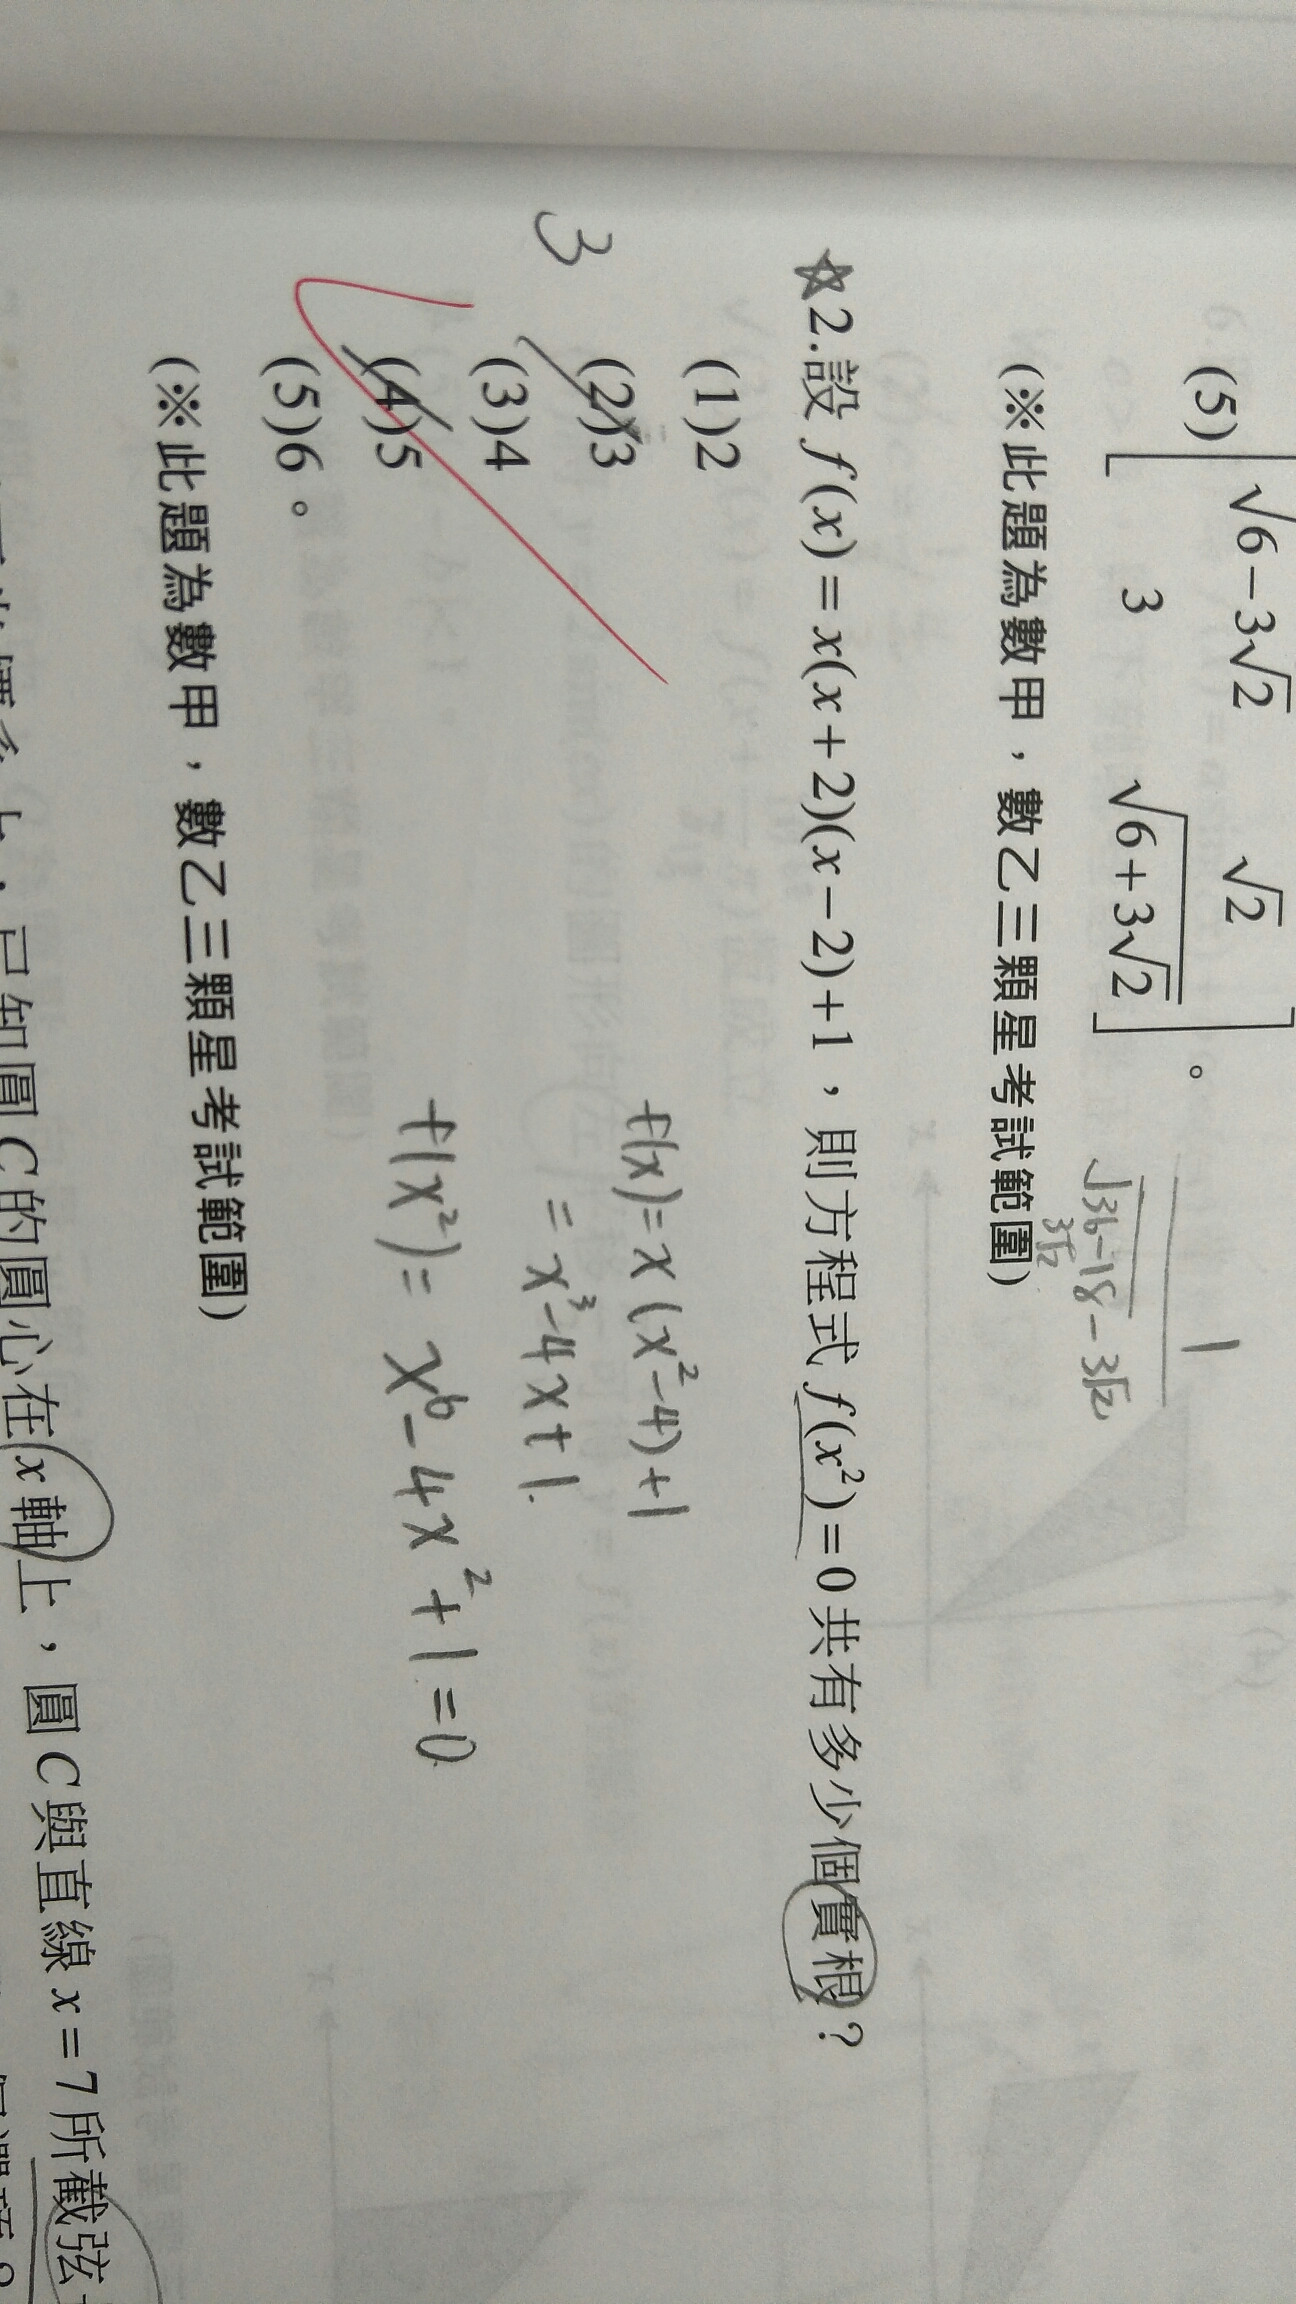 (5) [ √6-3√2 √2
3 √6+3√2 ] 。
1
√36-18 - 3√2
3√2
(※此題為數甲，數乙三顆星考試範圍)
☆2.設 f(x)=x(x+2)(x-2)+1，則方程式 f(x²)=0共有多少個實根？
(1)2
f(x)=x(x²-4)+1
3
(2)3
= x³-4x+1.
(3)4
(4)5
f(x²)= x⁶-4x²+1=0.
(5)6。
(※此題為數甲，數乙三顆星考試範圍)
已知圓C的圓心在x軸上，圓C與直線x=7所截弦